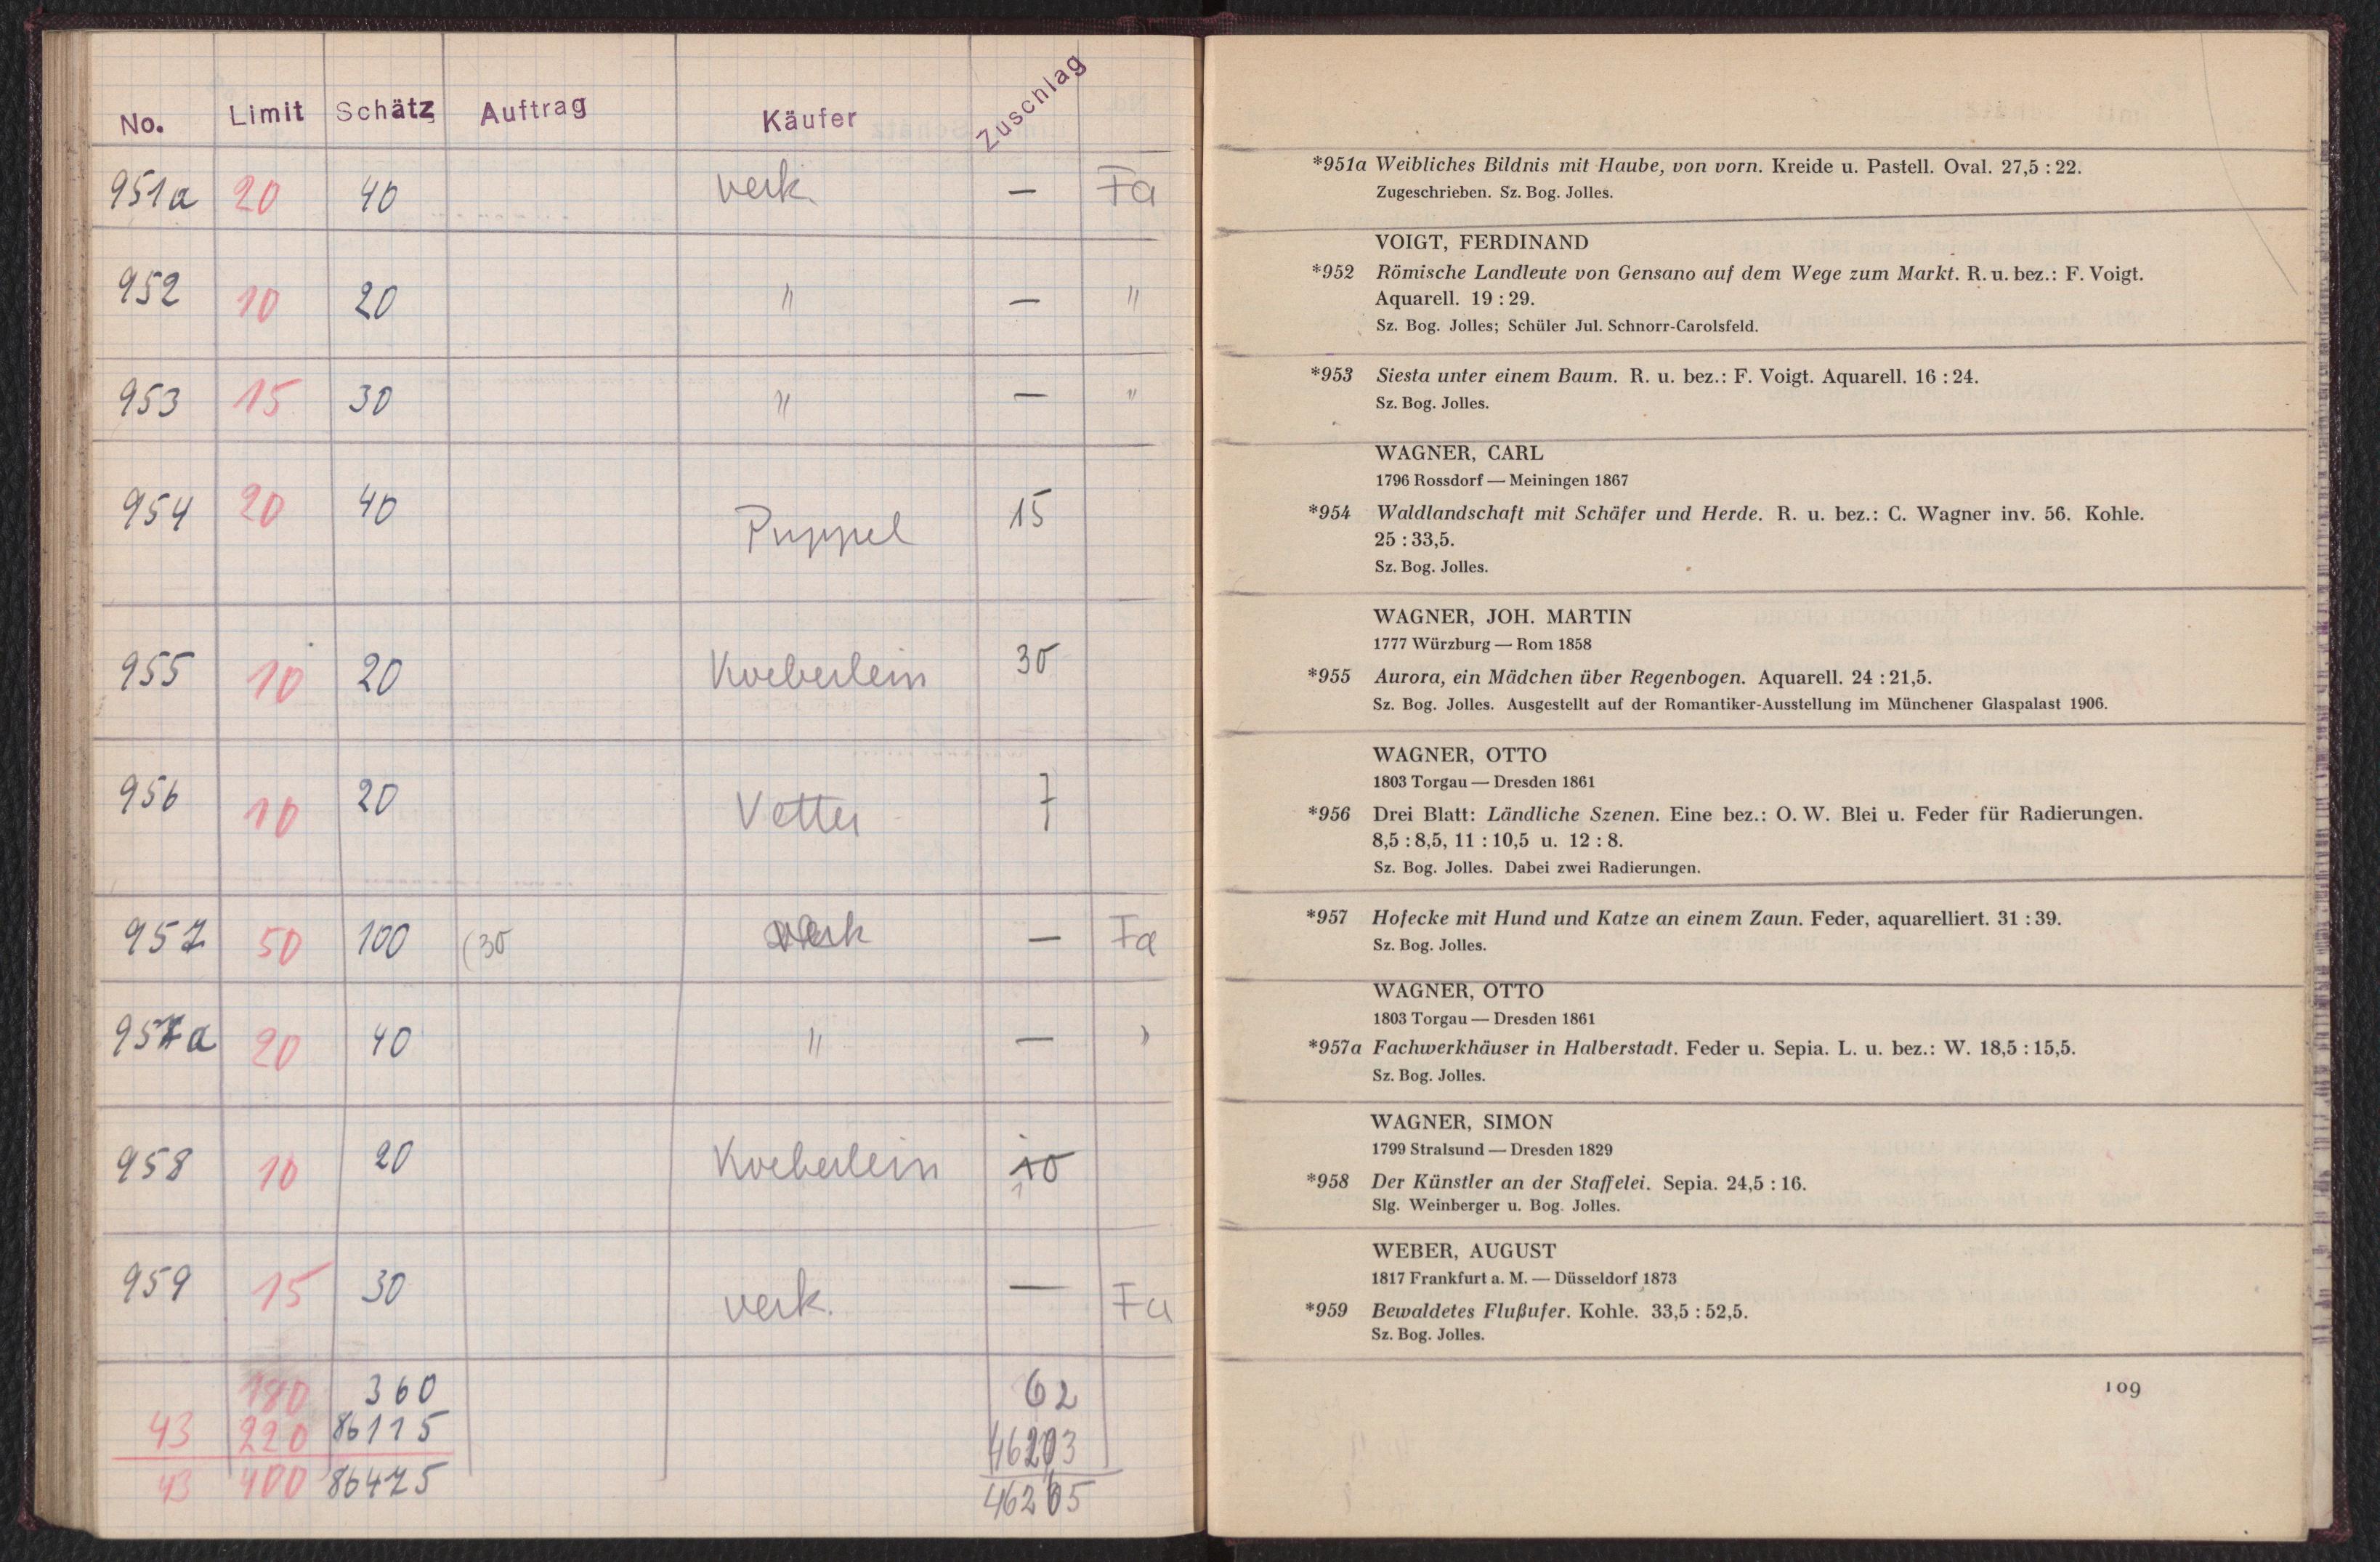 No. Limit Schätz Auftrag Käufer Zuschlag
951a 20 40 verk. — Fa
952 10 20 " — "
953 15 30 " — "
954 20 40 Puppel 15
955 10 20 Koeberlein 30
956 10 20 Vetter 7
957 50 100 (30 verk — Fa
957a 20 40 " — "
958 10 20 Koeberlein 10
959 15 30 verk. — Fa
180 360 62
43 220 86115 46203
43 400 86475 46265
*951a Weibliches Bildnis mit Haube, von vorn. Kreide u. Pastell. Oval. 27,5 : 22.
Zugeschrieben. Sz. Bog. Jolles.
VOIGT, FERDINAND
*952 Römische Landleute von Gensano auf dem Wege zum Markt. R. u. bez.: F. Voigt.
Aquarell. 19 : 29.
Sz. Bog. Jolles; Schüler Jul. Schnorr-Carolsfeld.
*953 Siesta unter einem Baum. R. u. bez.: F. Voigt. Aquarell. 16 : 24.
Sz. Bog. Jolles.
WAGNER, CARL
1796 Rossdorf — Meiningen 1867
*954 Waldlandschaft mit Schäfer und Herde. R. u. bez.: C. Wagner inv. 56. Kohle.
25 : 33,5.
Sz. Bog. Jolles.
WAGNER, JOH. MARTIN
1777 Würzburg — Rom 1858
*955 Aurora, ein Mädchen über Regenbogen. Aquarell. 24 : 21,5.
Sz. Bog. Jolles. Ausgestellt auf der Romantiker-Ausstellung im Münchener Glaspalast 1906.
WAGNER, OTTO
1803 Torgau — Dresden 1861
*956 Drei Blatt: Ländliche Szenen. Eine bez.: O. W. Blei u. Feder für Radierungen.
8,5 : 8,5, 11 : 10,5 u. 12 : 8.
Sz. Bog. Jolles. Dabei zwei Radierungen.
*957 Hofecke mit Hund und Katze an einem Zaun. Feder, aquarelliert. 31 : 39.
Sz. Bog. Jolles.
WAGNER, OTTO
1803 Torgau — Dresden 1861
*957a Fachwerkhäuser in Halberstadt. Feder u. Sepia. L. u. bez.: W. 18,5 : 15,5.
Sz. Bog. Jolles.
WAGNER, SIMON
1799 Stralsund — Dresden 1829
*958 Der Künstler an der Staffelei. Sepia. 24,5 : 16.
Slg. Weinberger u. Bog. Jolles.
WEBER, AUGUST
1817 Frankfurt a. M. — Düsseldorf 1873
*959 Bewaldetes Flußufer. Kohle. 33,5 : 52,5.
Sz. Bog. Jolles.
109